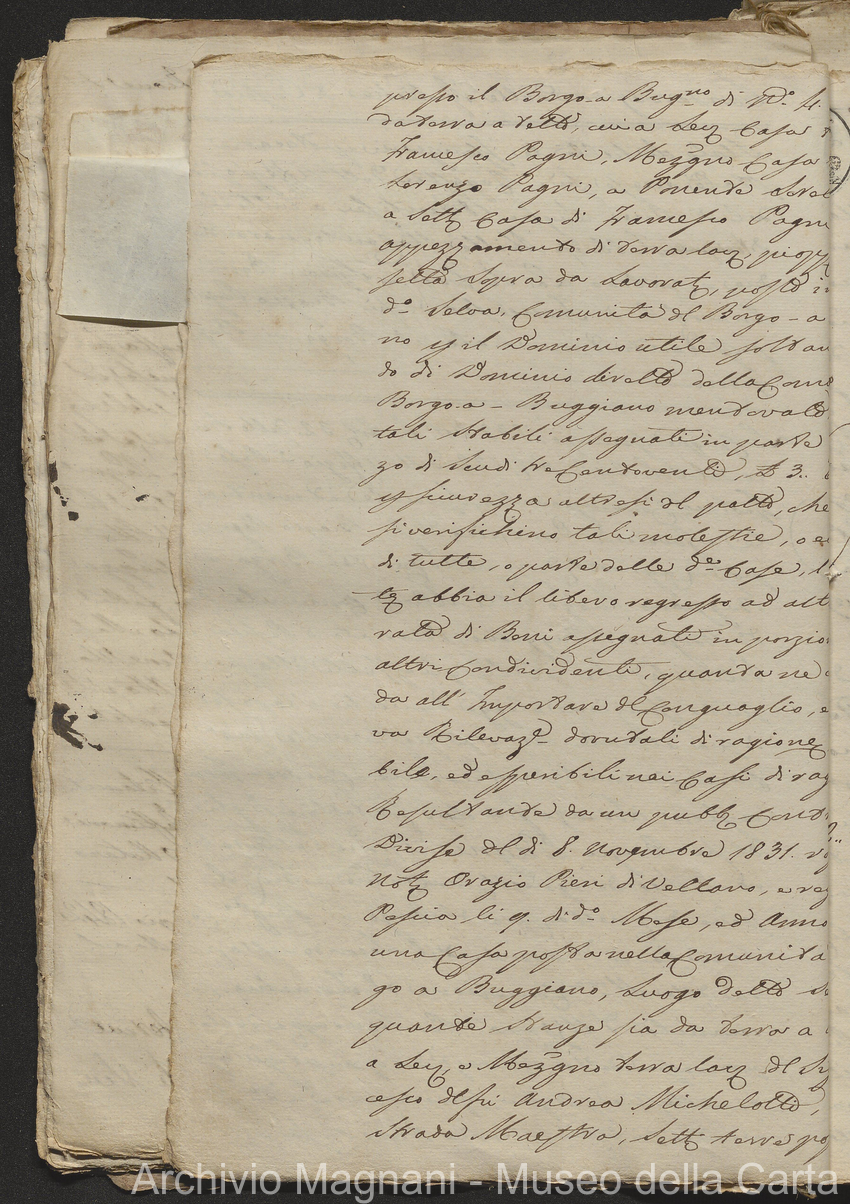 presso il Borgo-a Bug.no di N.o 4.
da terra a tetto, cui a Lev. Casa
Francesco Pagni, Mezzgno Casa
Lorenzo Pagni, a Ponente
a Sett. Casa di Francesco Pagn
appezzamento di terra lav. piopp
setto Sopra da Lavorat., posto in
d.o Selva, Comunità del Borgo-a
no e il Dominio utile soltan
do di Dominio diretto della Com
Borgo-a-Buggiano mentovato
tali Stabili assegnati in parte
zo di Scudi trecentoventi, £ 3..
sicurezza altresì del patto, che
si verifichino tali molestie, o e
di tutte, o parte delle d.e Case,
abbia il libero regresso ad alt
rata di Beni assegnati in porzio
altri Condividenti, quanta ne
da all' Importare del Conguaglio, e
va Rilevaz.e dovutali di ragione
bile, ed esperibili nei Casi di rag
Resultante da un pubb. Cont
Divise del dì 8. Novembre 1831. r
Not. Orazio Pieri di Vellano, e reg
Pescia li 9. di d.o Mese, ed Anno
una Casa posta nella Comunità
go a Buggiano, Luogo detto
quante stanze sia da terra a
a Lev., e Mezzgno terra lav. del
cesco del fu Andrea Michelotti,
strada Maestra, Sett. terre po
Archivio Magnani - Museo della Carta